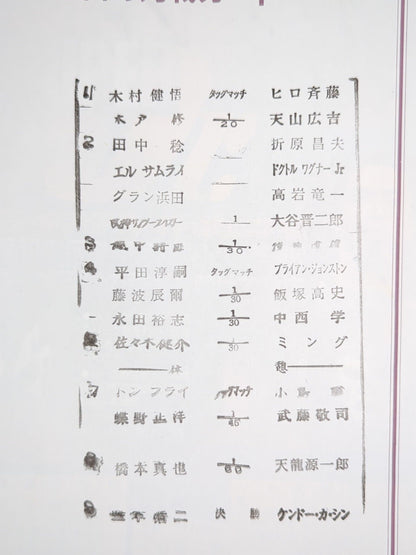 1 木村健悟 タッグマッチ ヒロ斉藤
木戸 修 1/20 天山広吉
2 田中 稔 折原昌夫
エル サムライ ドクトル ワグナー Jr
グラン浜田 高岩竜一
1 大谷晋二郎
3 1/30
4 平田淳嗣 タッグマッチ ブライアン・ジョンストン
藤波辰爾 1/30 飯塚高史
永田裕志 1/30 中西 学
佐々木健介 1/30 ミング
休 憩
7 ドン フライ タッグマッチ 小島
蝶野正洋 1/45 武藤敬司
橋本真也 1/60 天龍源一郎
決 勝 ケンドー・カ・シン